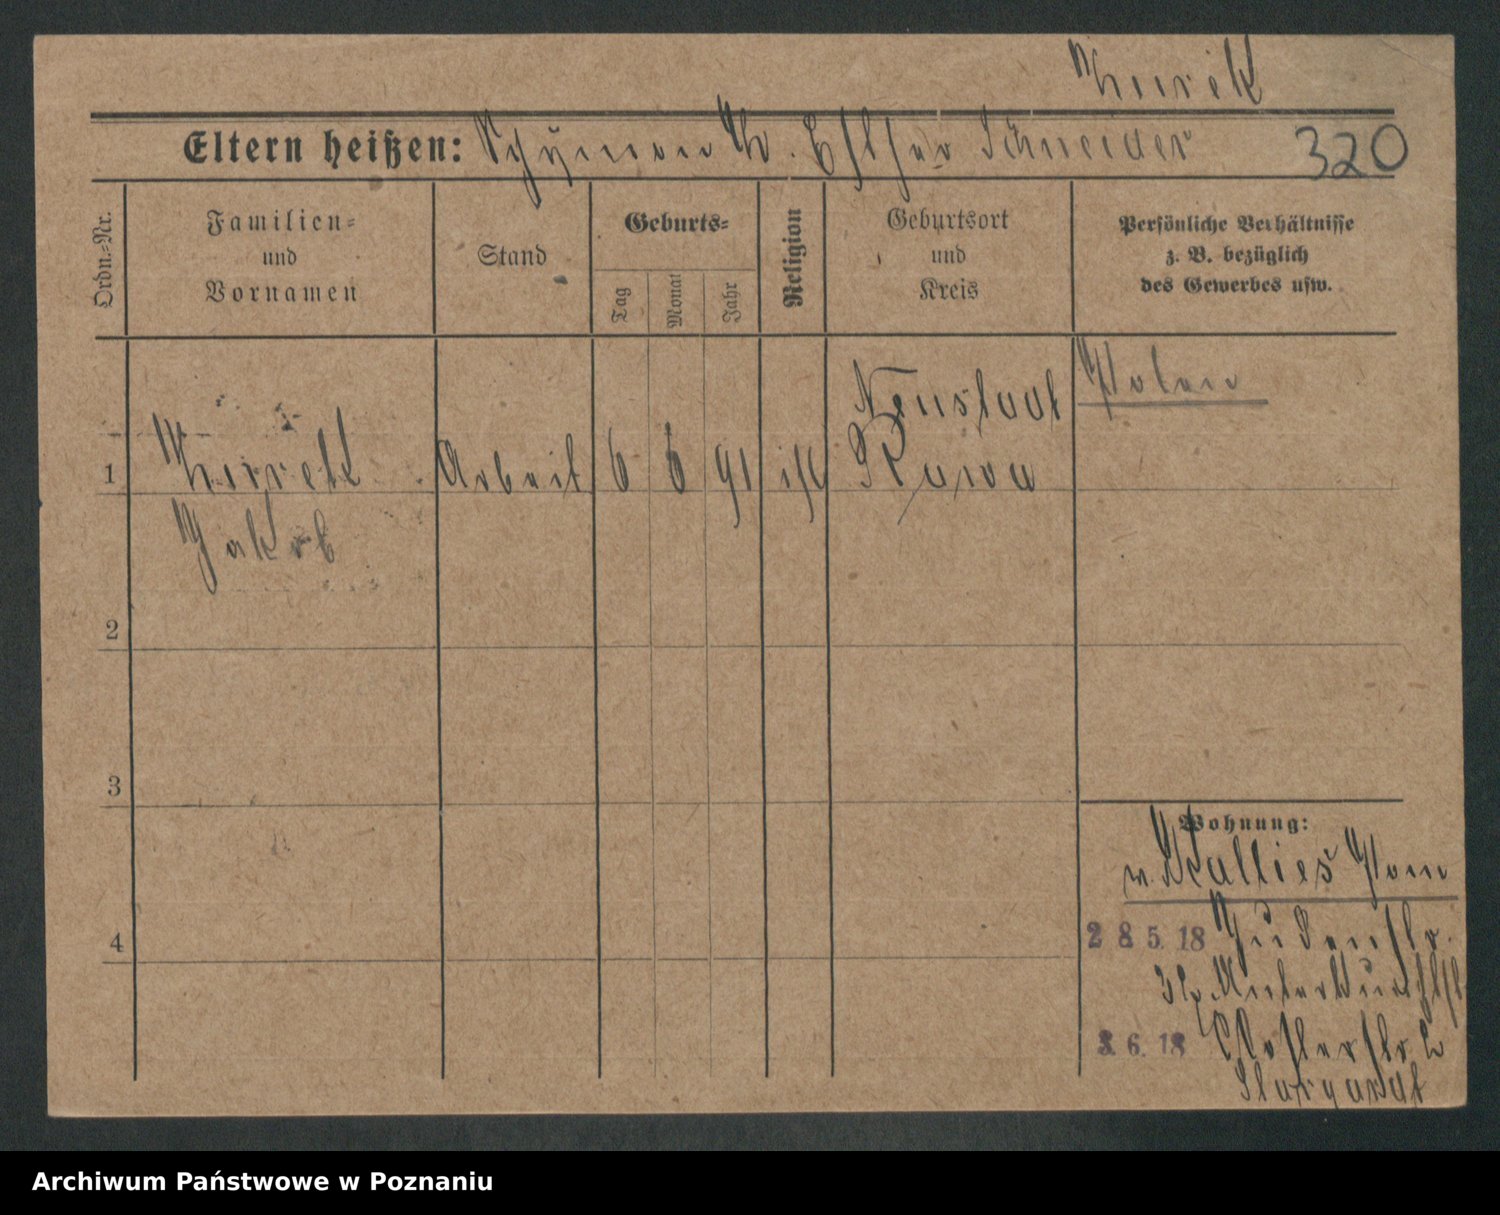 320
Eltern heißen: Schymon Esther Schneider
Ordn.-Nr.
Familien-
und
Vornamen
Stand
Geburts-
Tag
Monat
Jahr
Religion
Geburtsort
und
Kreis
Persönliche Verhältnisse
z. B. bezüglich
des Gewerbes usw.
Polen
Neustadt
1 Arbeit 6 6 91 isr Rawa
Jakob
2
3
4
Wohnung:
v. Kallies Pom
28.5.18 Judenstr.
3.6.18 Klosterstr. 2
Stargardt
Archiwum Państwowe w Poznaniu